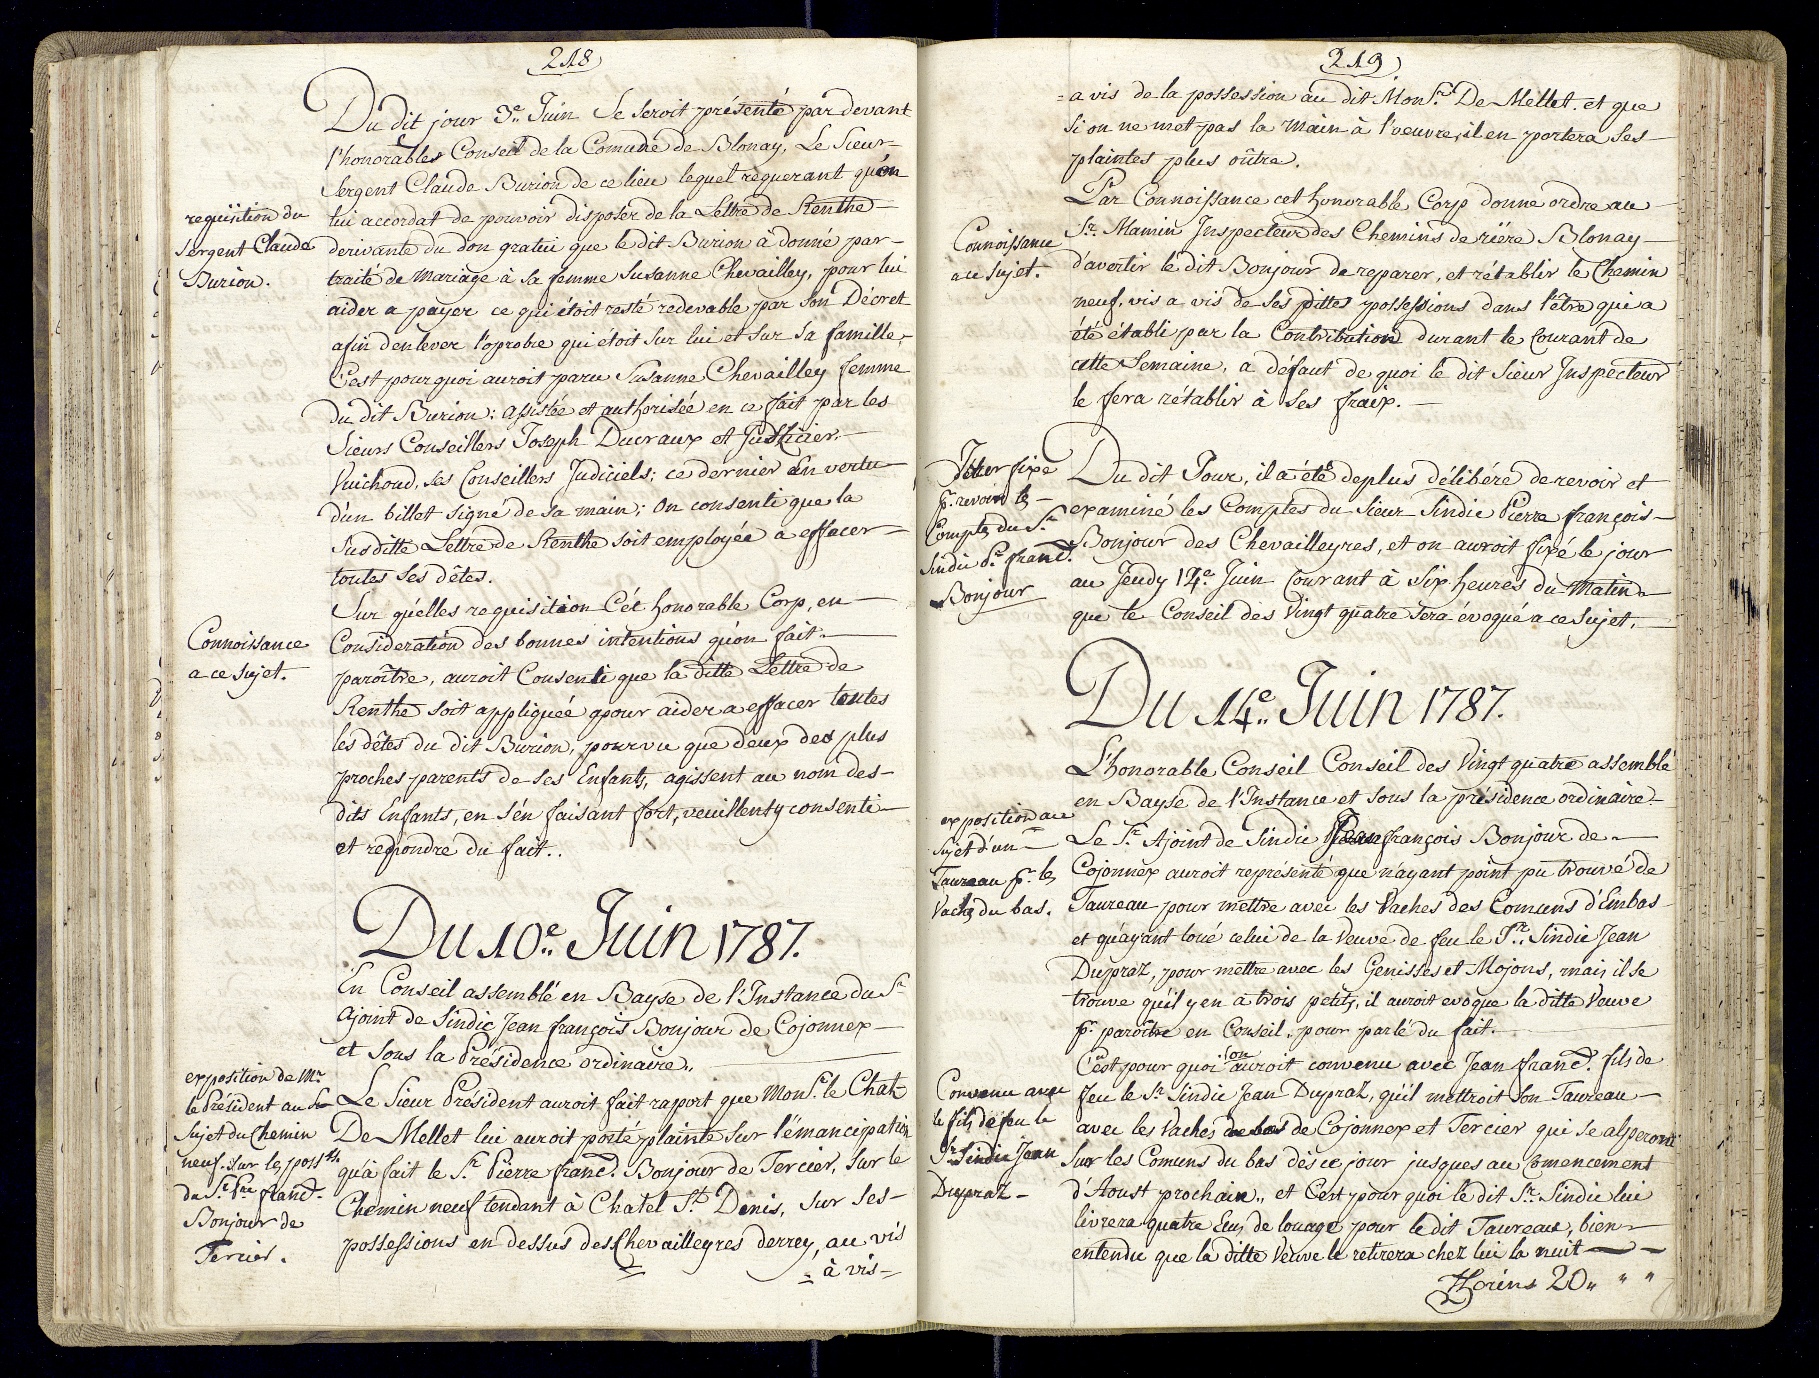 218
Du dit jour 3.e Juin Se seroit présenté par devant
l'honorables Conseil de la Comune de Blonay, Le Sieur
Sergent Claude Burion de ce lieu lequel requerant qu'on
requisition du
Sergent Claude
Burion.
lui accordat de pouvoir disposer de la Lettre de Renthe
derivante du don gratui que le dit Burion à donné par
traité de mariage à sa femme Susanne Chevailley, pour lui
aider a payer ce qui étoit resté redevable par son Décret
afin d'enlever l'oprobre qui étoit sur lui et sur sa famille,
C'est pourquoi auroit paru Susanne Chevailley femme
du dit Burion; assistée et authorisée en ce fait par les
Sieurs Conseillers Joseph Ducraux et Justicier
Vuichoud, ses Conseillers Judiciels; ce dernier En vertu
d'un billet signé de sa main; On consenti que la
Susditte Lettre de Renthe soit employée a effacer
toutes ses dêtes.
Sur quelles requisition Cét honorable Corp, en
Connoissance
a ce sujet.
Consideration des bonnes intentions qu'on fait
paroître, auroit Consenti que la ditte Lettre de
Renthe soit appliquée pour aider a effacer toutes
les dêtes du dit Burion, pourvu que deux des plus
proches parents de ses Enfants, agissent au nom des
dits Enfants, en s'en faisant fort, veuillent y consenti
et repondre du fait..
Du 10.e Juin 1787.
En Conseil assemblé en Bayse de l'Instance du Sr
Ajoint de Sindic Jean françois Bonjour de Cojonnex
et sous la Présidence ordinaire,,
exposition de Mr
le Président au
Sujet du Chemin
neuf. sur les poss.ns
du Sr. Pre franc̃.
Bonjour de
Tercier.
Le Sieur Président auroit fait raport que Mons.r le Chat
De Mellet lui auroit porté plainte sur l'émancipation
qu'a fait le Sr. Pierre franc̃. Bonjour de Tercier, sur le
Chemin neuf tendant à Chatel St Denis, sur ses
possessions en dessus des Chevailleyres derrey, au vis
= à vis =
219
= a vis de la possession au dit Mons.r De Mellet. et que
Si on ne met pas la main à l'oeuvre, il en portera ses
plaintes plus oûtre.
Par Connoissance cet honorable Corp donne ordre au
Connoissance
au sujet.
Sr. Mamin Inspecteur des Chemins de rière Blonay
d'avertir le dit Bonjour de reparer, et rétablir le Chemin
neuf, vis a vis de ses dittes possessions dans l'être qui a
été établi par la Contribution durant le Courant de
cette Semaine, a défaut de quoi le dit Sieur Inspecteur
le fera rétablir à ses fraix.
Jour fixe
pr. revoir les
Comptes du Sr
Sindic Pre franc̃.
Bonjour
Du dit Jour, il a été deplus délibéré de revoir et
examiné les Comptes du Sieur Sindic Pierre françois
Bonjour des Chevailleyres, et on auroit fixé le jour
au Jeudy 14.e Juin Courant à Six heures du Matin
que le Conseil des Vingt quatre sera évoqué a ce sujet.
Du 14.e Juin 1787.
L'honorable Conseil Conseil des Vingt quatre assemblé
en Bayse de l'Instance et sous la présidence ordinaire
exposition au
Sujet d'un
Taureau pr. les
Vaches du bas.
Le Sr. Ajoint de Sindic Jean françois Bonjour de
Cojonnex auroit représenté que n'ayant point pu trouvé de
Taureau pour mettre avec les Vaches des Comuns d'Embas
et qu'ayant loué celui de la Veuve de feu le Sr. Sindic Jean
Dupraz, pour mettre avec les Genisses et Mojons, mais il se
trouve qu'il y en a trois petits, il auroit evoque la ditte Veuve
pr. paroître en Conseil, pour parlé du fait.
C'est pour quoi on auroit convenu avec Jean franc̃. fils de
Convenu avec
le fils de feu le
Sr. Sindic Jean
Dupraz
feu le Sr. Sindic Jean Dupraz, qu'il mettroit son Taureau
avec les Vaches de bas de Cojonnex et Tercier qui se alperont
Sur les Comuns du bas dès ce jour jusques au Comencement
d'Aoust prochain,, et C'est pour quoi le dit Sr. Sindic lui
livrera quatre Ecus de louage pour le dit Taureau, bien
entendu que la ditte Veuve le retirera chez lui la nuit
florins 20 ,, " "